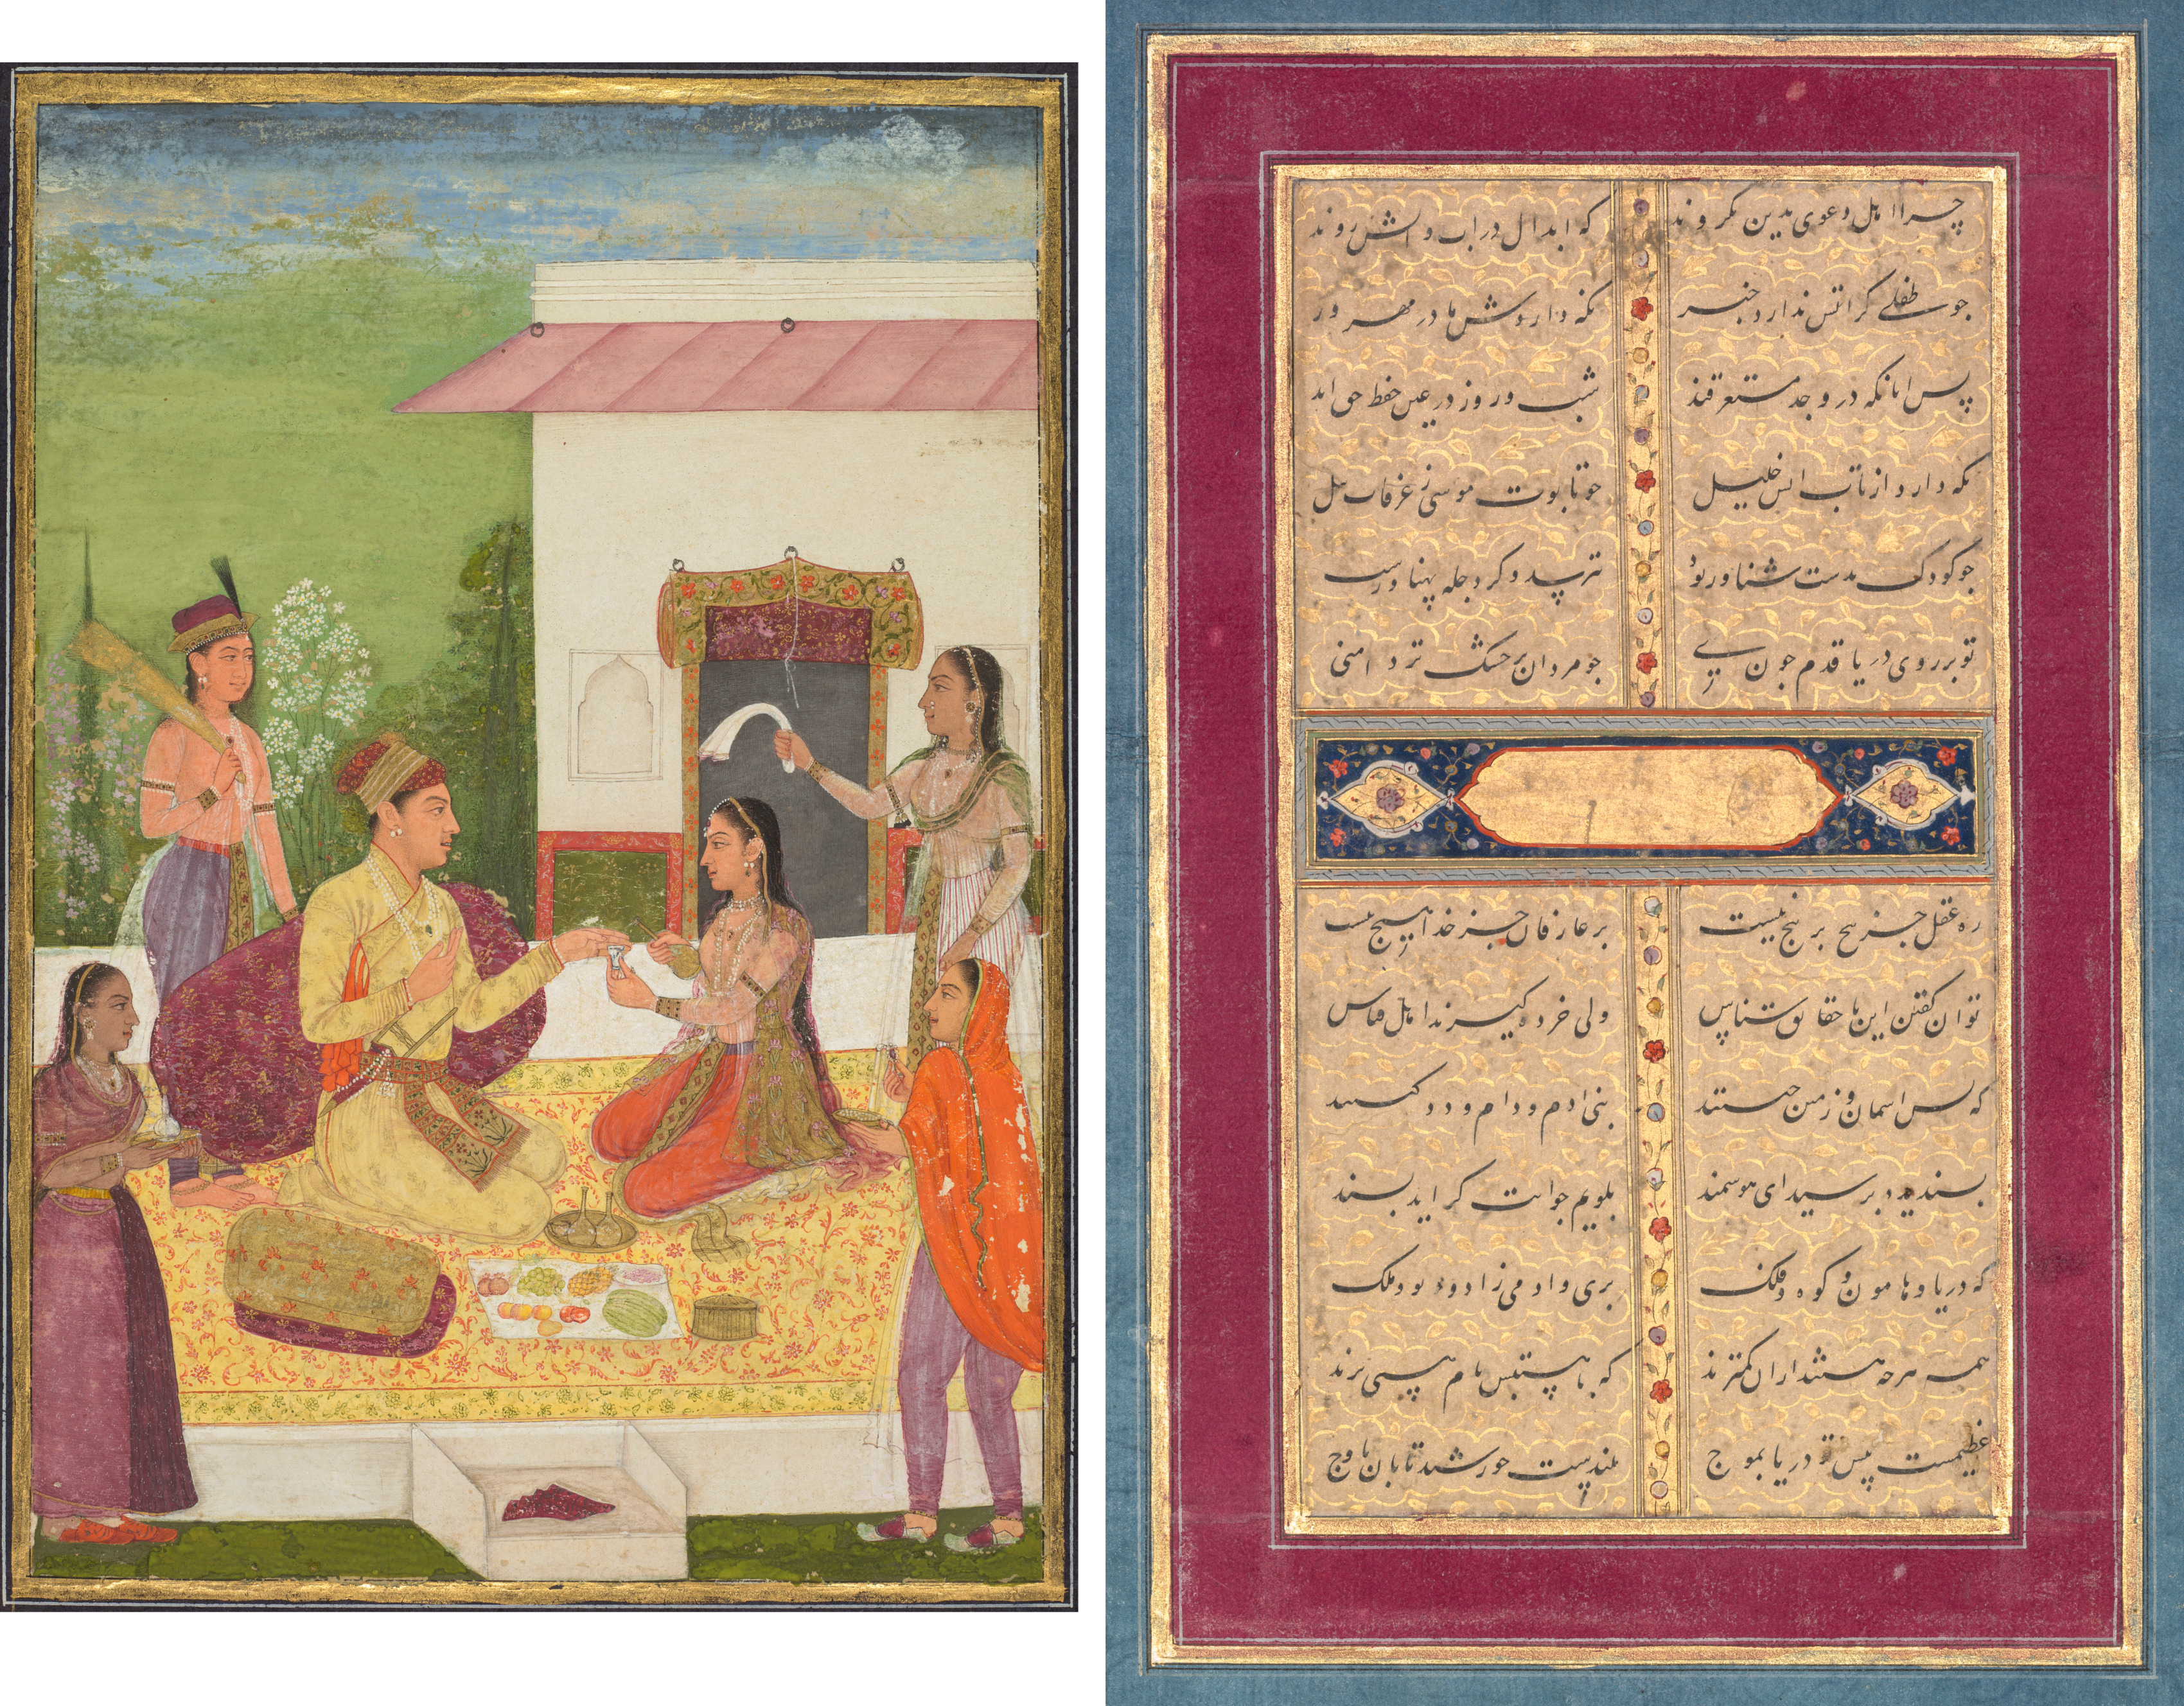 چرا اهل دعوی بدین نکروند که ابدال در اب و اتش روند
جو طفلے کز اتش ندارد خبر نکه داردش مادر مهرور
پس انانکه در وجد مستغرقند شب و روز در عین حفظ حق اند
نکه دارد از تاب اتش خلیل جو تابوت موسی ز غرقاب نیل
جو کودک بدست شناور بود نترسد و کر دجله پهناورست
تو بر روی دریا قدم جون زنے جو مردان که بر خشک تر دامنی
ره عقل جز بیج بر بیج نیست بر عارفان جز خدا هیج نیست
توان کفتن این با حقایق شناس ولی خرده کیرند اهل قیاس
که بس اسمان و زمین جیستند بنی ادم و دام و دد کیستند
بسندیده برسیدی ای هوشمند بکویم جوابت کر اید بسند
که دریا و هامون و کوه و فلک بری و ادمی زاد و دیو و ملک
همه هرجه هستند از ان کمترند که با هستیش نام هستی برند
عظیمست پیش تو دریا بموج بلندیست خورشید تابان باوج